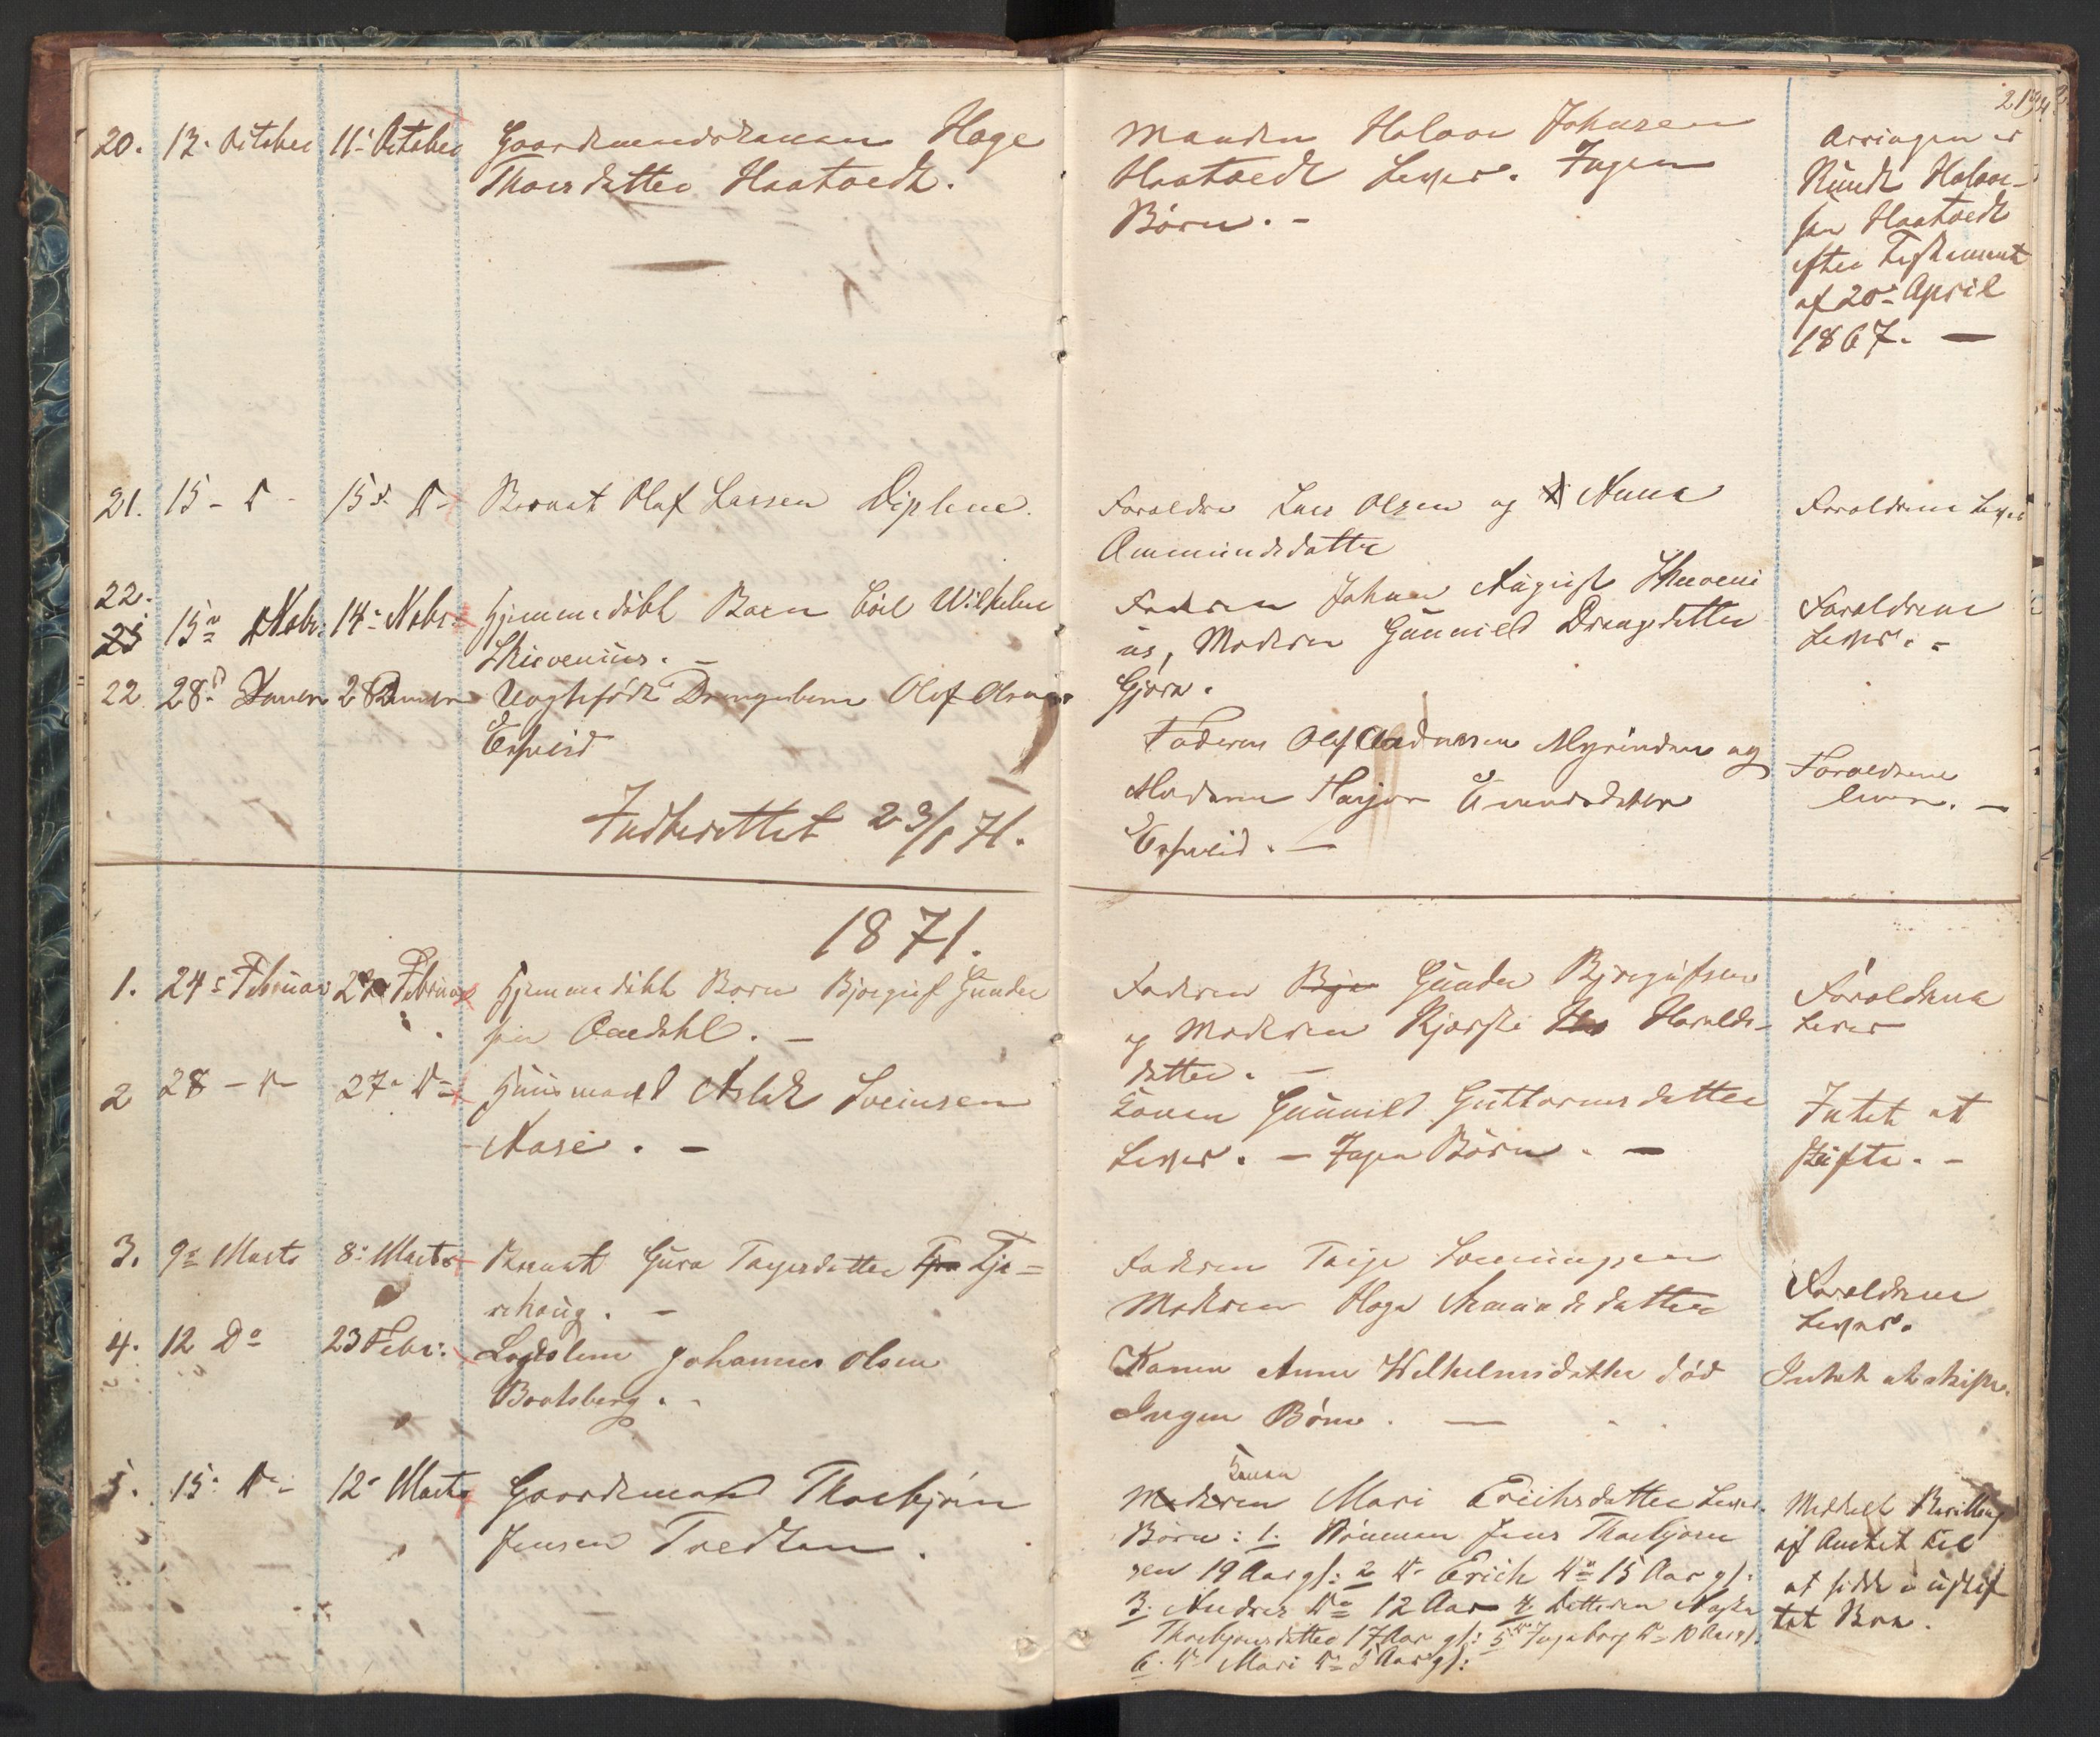 20. 12. October 11. October Gaardmandskonen Hage
Thorsdatter Haatvedt.
Manden Halvor Johnsen
Haatvedt Lever. Ingen
Børn. -
Arvingen er
Knudt Halvor-
sen Haatvedt
efter Testament
af 20. April
1867. —
21. 15 - D 15. D - Barnet Olaf Larsen Diplene.
Foreldre Lars Olsen og Anna
Ammundsdatter
Foreldrene Lever
22.
15 Nobr. 14 Nobr. Hjemmedøbt Barn Carl Wilhelm
Skievenius. -
Faderen Johan August Skieveni
us, Moderen Gunnild Drengsdatter
Gjern.
Foreldrene
Lever. -
22 28 28 Uægtefødt Drengebarn Olaf Olsen
Faderen Olaf Andersen og
Moderen
Foreldrene
lever. —
Indberettet 23/1 71.
1871.
1. 24 Februar Februar Hjemmedøbt Barn Bjorgulf Gunder
sen
Faderen Gunder Bjorgulfsen
og Moderen Kjersti Haralds-
datter. -
Foreldrene
Lever
2 28 - D 27 D Huusmand Aslak Sveinsen
Aase. -
Konen Gunnild Guttormsdatter
Lever. - Ingen Børn. -
Intet at
skifte. -
3. 9 Marts 8 Marts Barnet Gura Tarjesdatter Tje=
rehaug. -
Faderen Tarje Sveinungsen
Moderen Hage Asmundsdatter
Foreldrene
Lever.
4. 12 Do 23 Febr. Lægdslem Johannes Olsen
Bootsberg.
Konen Anne Wilhelmsdatter død
Ingen Børn. —
Intet at skifte.
5. 15. D 12 Marts Gaardmand Thorbjørn
Jensen Tvedten.
Konen
Mari Erichsdatter Lever.
Børn: 1. Sønnen Jens Thorbjørn
sen 19 Aar gl: 2 D Erich D 15 Aar gl.
3. Andres D 12 Aar 4 Datteren
Thorbjørnsdatter 17 Aar gl: 5 Ingeborg D 10 Aar gl.
6. D Mari D 5 Aar gl:
Meddelt Bevilling
af Amtet til
at sidde i uskif
tet Boe.